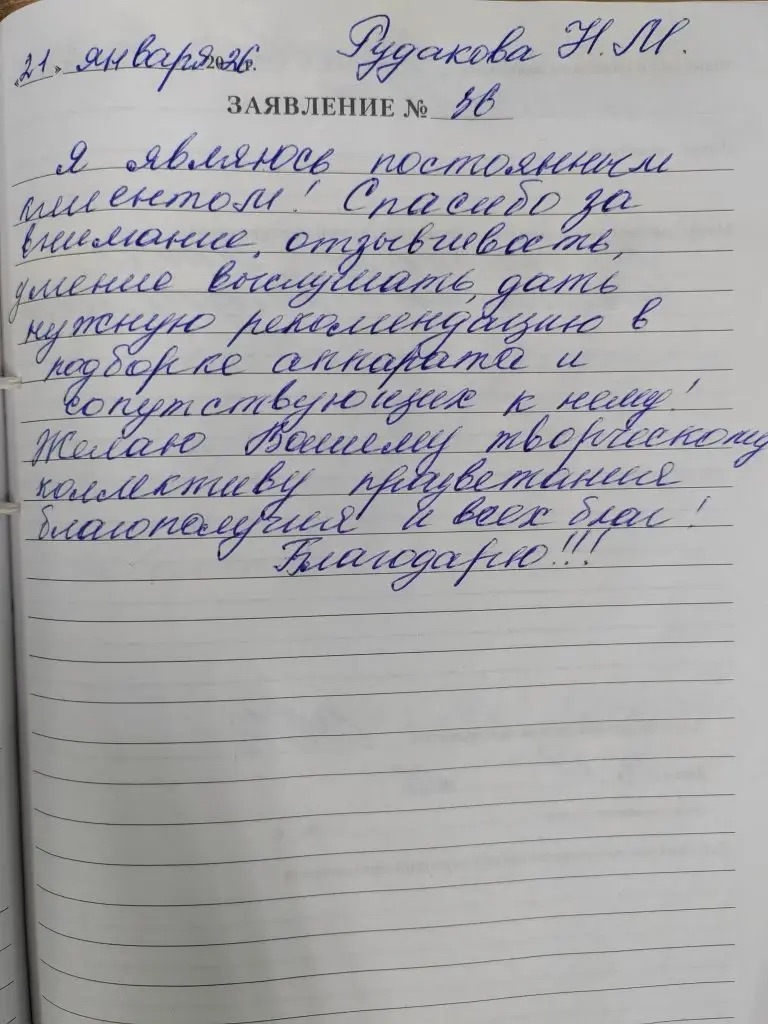 „21" января 2026 г. Рудакова Н.М.
ЗАЯВЛЕНИЕ № 36
Я являюсь постоянным
клиентом! Спасибо за
внимание, отзывчивость,
умение выслушать, дать
нужную рекомендацию в
подборке аппарата и
сопутствующих к нему!
Желаю Вашему творческому
коллективу процветания
благополучия и всех благ!
Благодарю!!!